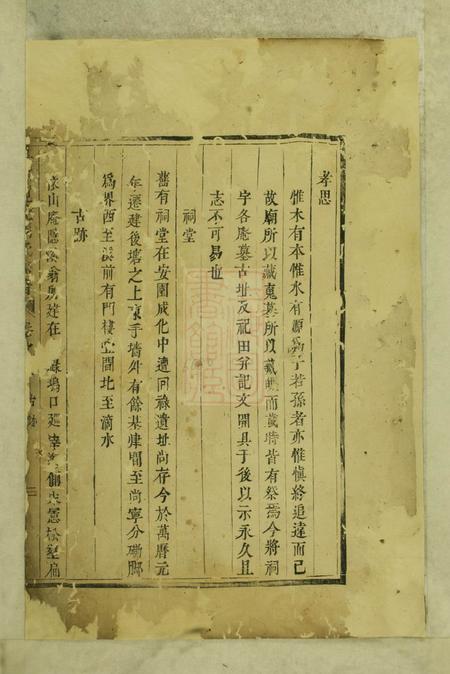 孝思
惟木有本惟水有源為子若孫者亦惟愼終追遠而已
故廟所以藏䰟墓所以藏魄而歲時皆有祭焉今將祠
字各庵墓古址及祀田并記文開具于後以示永久且
志不可易也
祠堂
舊有祠堂在安園成化中遭回祿遺址尙存今於萬曆元
年遷建後塘之上東手墻外有餘基肆間至尙寧分磡脚
為界西至前有門樓間北至滴水
古跡
山庵隱翁建在塢口延松扁
古跡